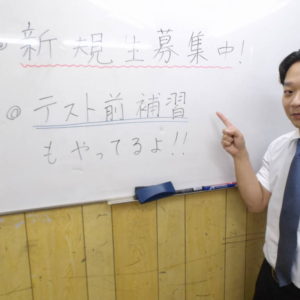 ◎新規生募集中!
◎テスト前補習
もやってるよ!!